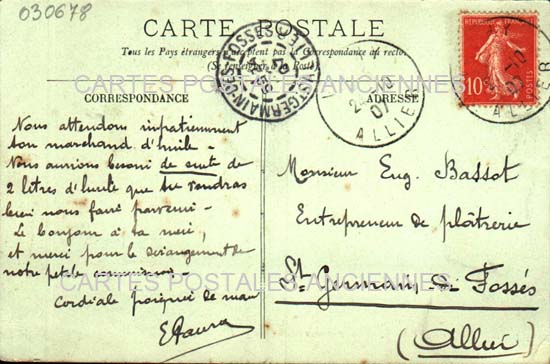 030678
CARTE POSTALE
Tous les Pays étrangers n'acceptent pas la Correspondance au recto
(Se renseigner à la Poste)
CORRESPONDANCE
ADRESSE
Nous attendons impatiemment
ton marchand d'huile -
Nous aurions besoin de suite de
2 litres d'huile que tu voudras
bien nous faire parvenir -
Le bonjour à ta mère,
et merci pour le dérangement de
notre petite commission -
Cordiale poignée de main
Monsieur Eug. Bassot
Entrepreneur de plâtrerie
St Germain-des-Fossés
(Allier)
ST GERMAIN-DES-FOSSES
07
2-10
07
ALLIER
REPUBLIQUE FRANÇAISE
10
POSTES
10
07
ALLIER
CARTES POSTALES ANCIENNES
CARTES POSTALES ANCIENNES